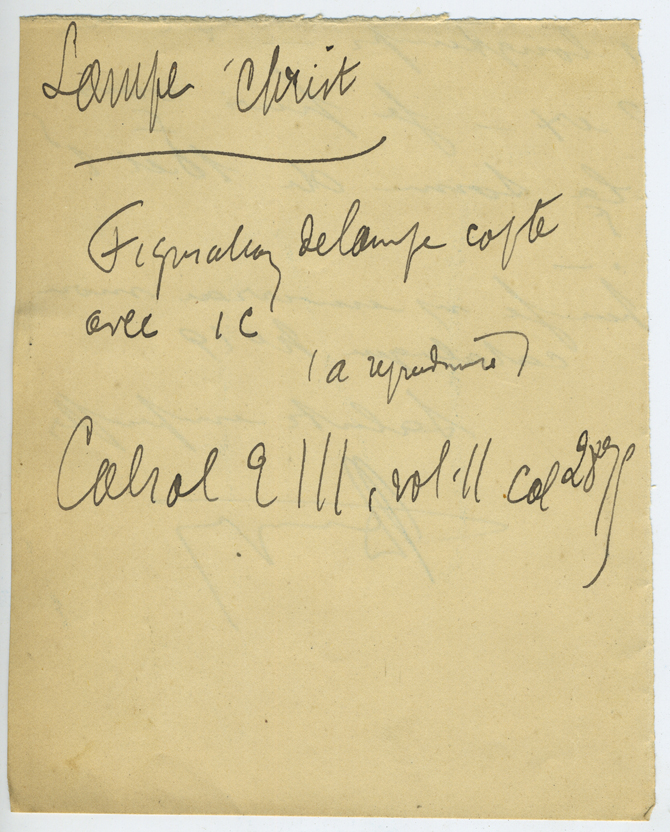 Lampe Christ
Figuration de lampe copte
avec IC
(a reproduire)
Cabrol III, vol. II col